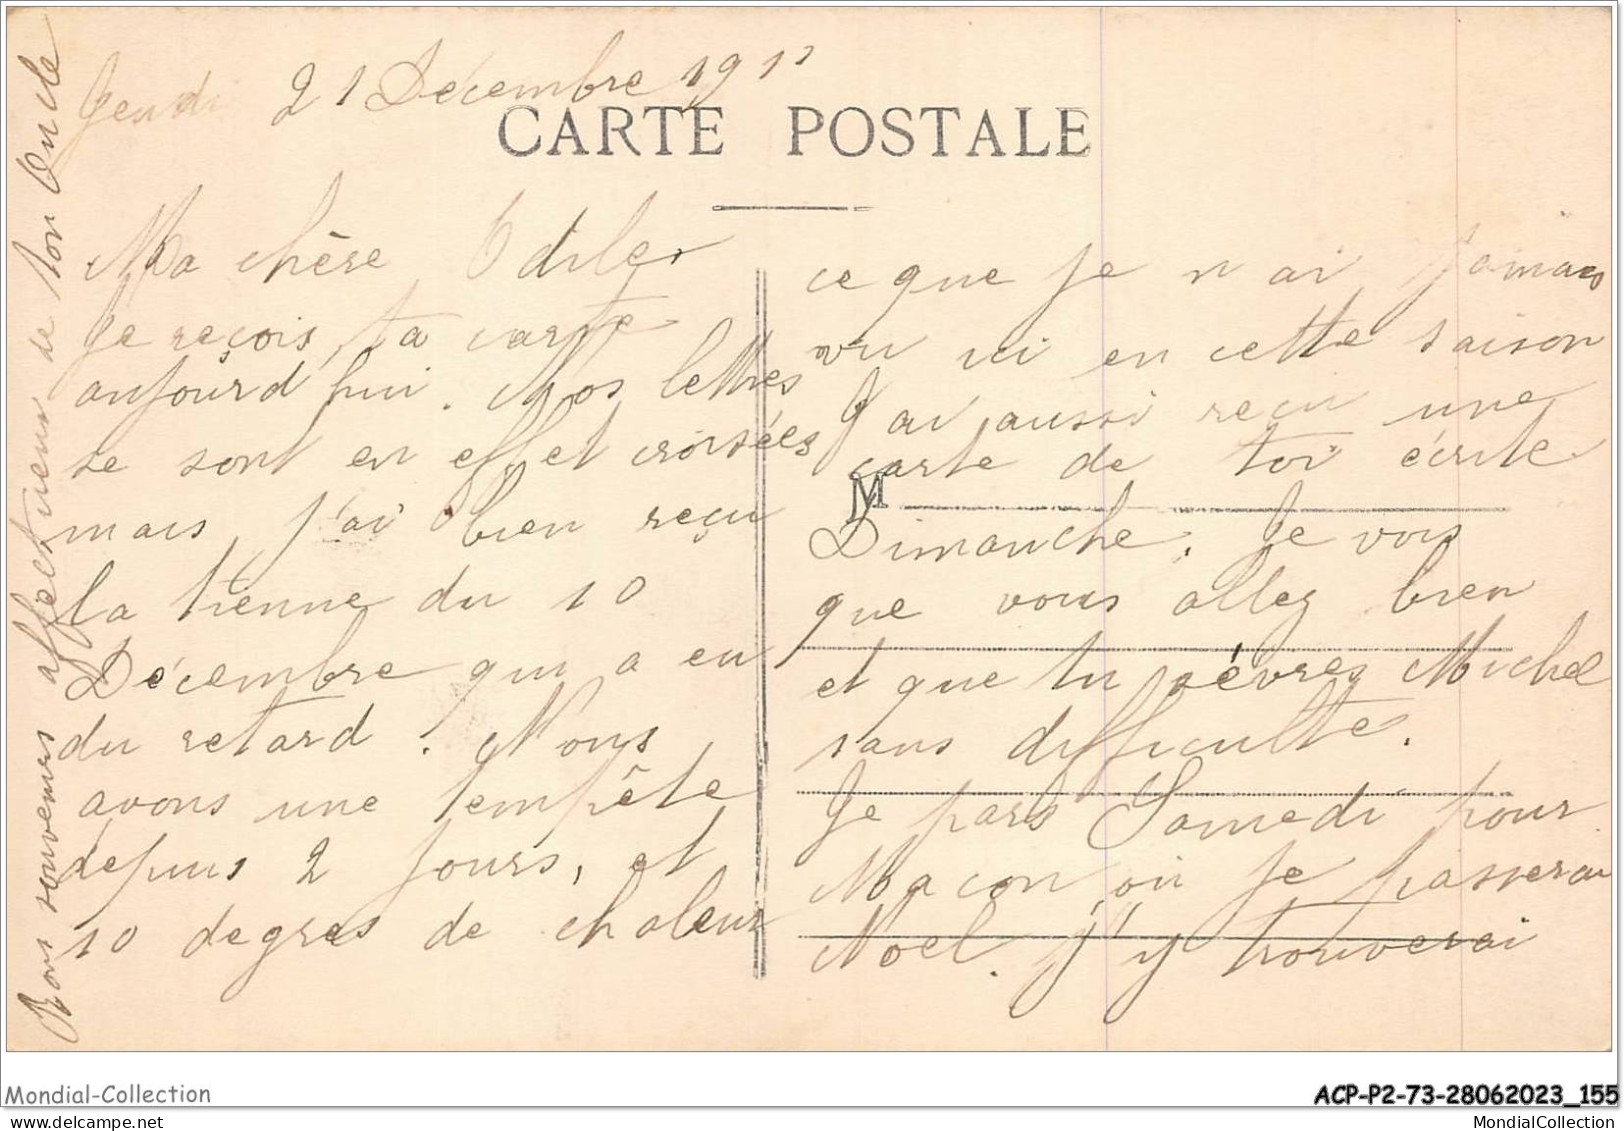 Jeudi 21 Décembre 1911
CARTE POSTALE
Ma chère Odile,
Je reçois ta carte
aujourd'hui. Nos lettres
se sont en effet croisées
mais j'ai bien reçu
la tienne du 10
Décembre qui a eu
du retard. Nous
avons une tempête
depuis 2 jours, et
10 degres de chaleur
ce que je n'ai jamais
vu ici en cette saison
J'ai aussi reçu une
carte de toi écrite
M
Dimanche. Je vois
que vous allez bien
et que tu sévres Michel
sans difficulté.
Je pars Samedi pour
Macon, où je passerai
Noel. J'y trouverai
Bons souvenirs affectueux de ton Oncle
Mondial-Collection
ACP-P2-73-28062023_155
www.delcampe.net
MondialCollection